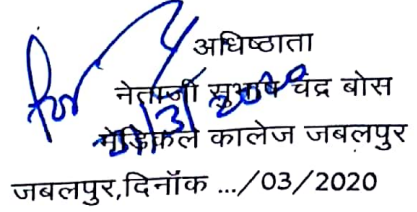 अधिष्ठाता
for
नेताजी सुभाष चंद्र बोस
मेडिकल कालेज जबलपुर
जबलपुर,दिनॉंक .../03/2020